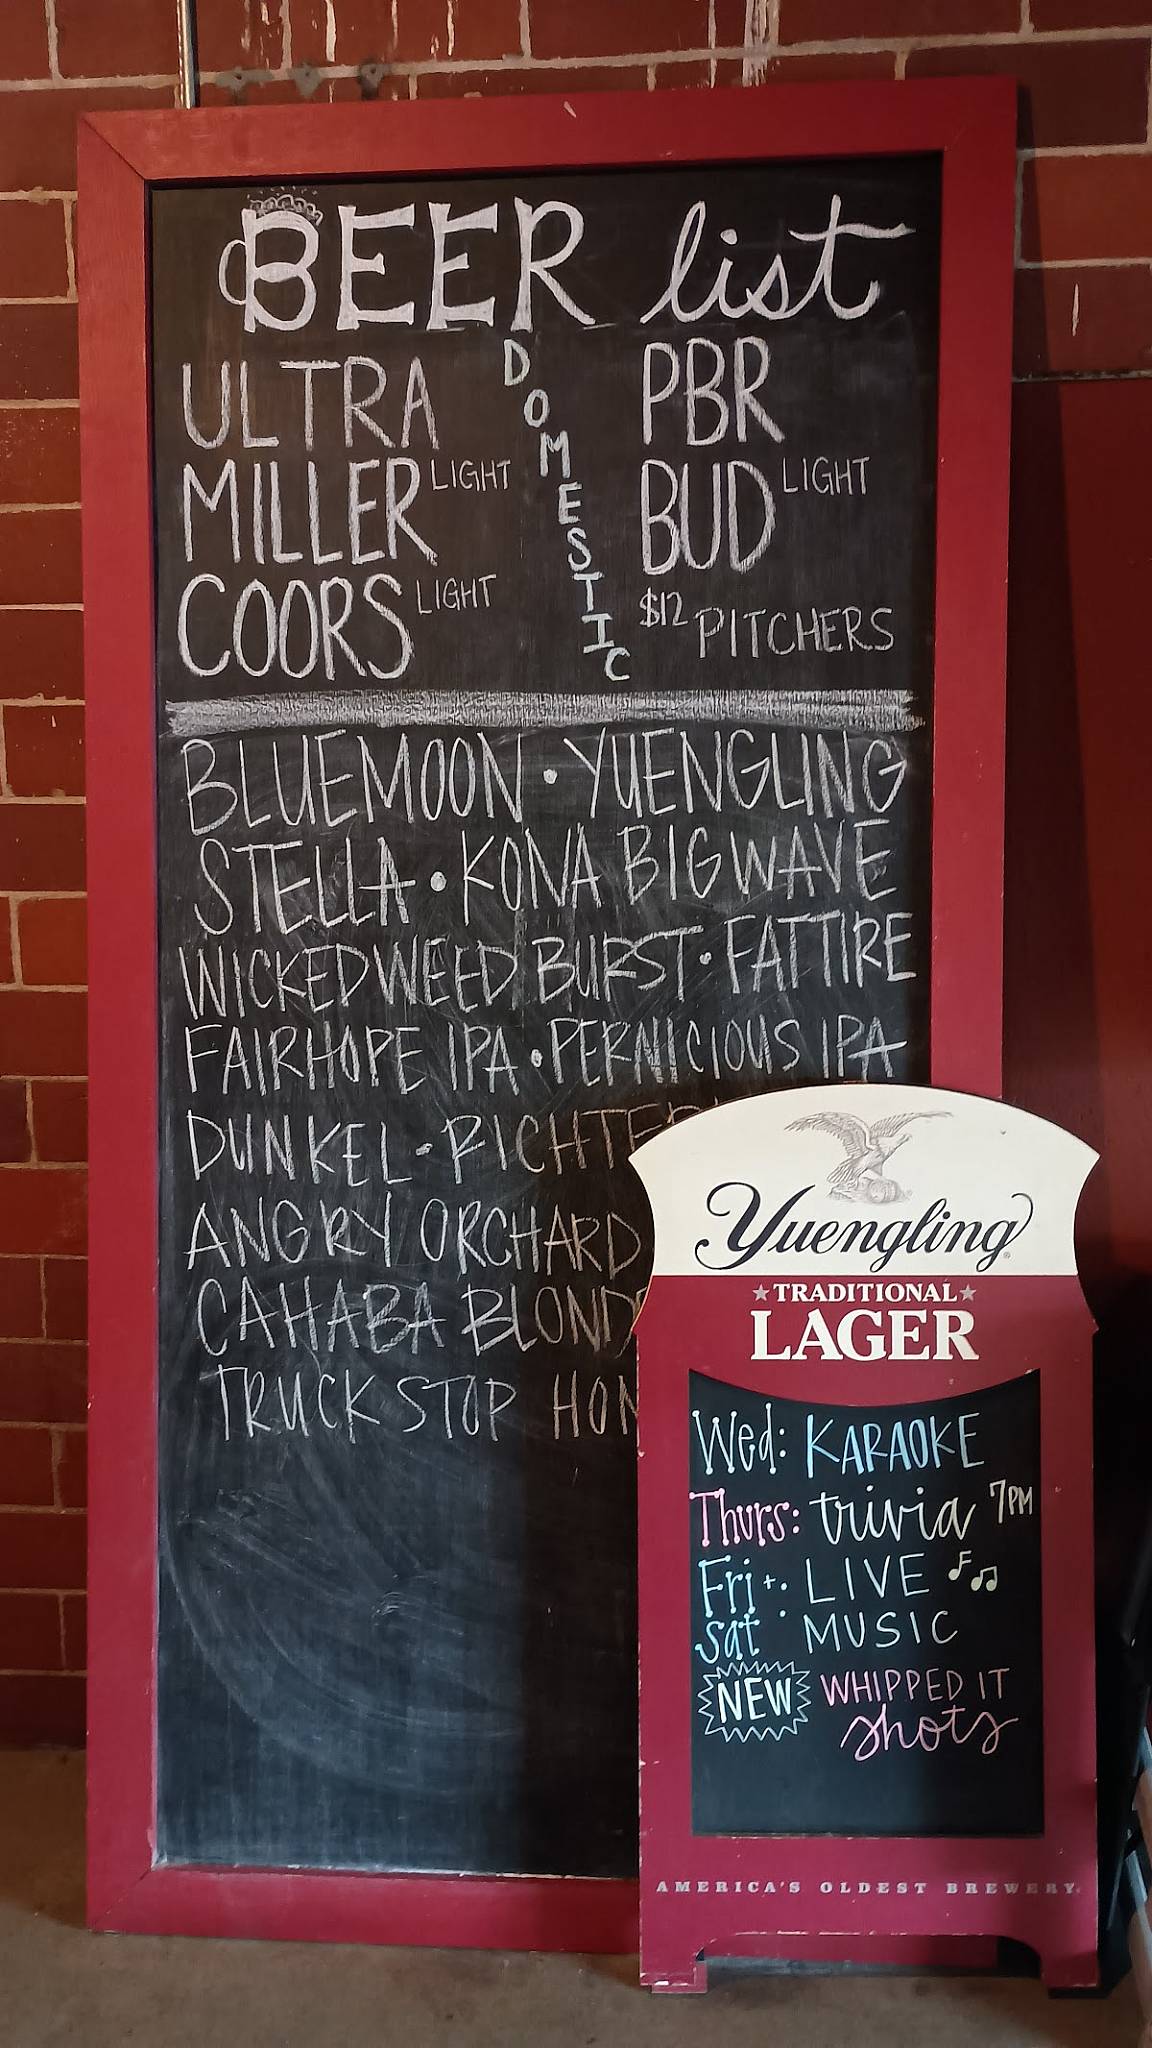 BEER list
DOMESTIC
ULTRA
MILLER LIGHT
COORS LIGHT
PBR
BUD LIGHT
$12 PITCHERS
BLUEMOON • YUENGLING
STELLA • KONA BIG WAVE
WICKEDWEED BURST • FATTIRE
FAIRHOPE IPA • PERNICIOUS IPA
DUNKEL • RICHTER
ANGRY ORCHARD
CAHABA BLONDE
TRUCK STOP HON
Yuengling
TRADITIONAL
LAGER
Wed: KARAOKE
Thurs: trivia 7PM
Fri + LIVE
sat : MUSIC
NEW WHIPPED IT
shots
AMERICA'S OLDEST BREWERY.